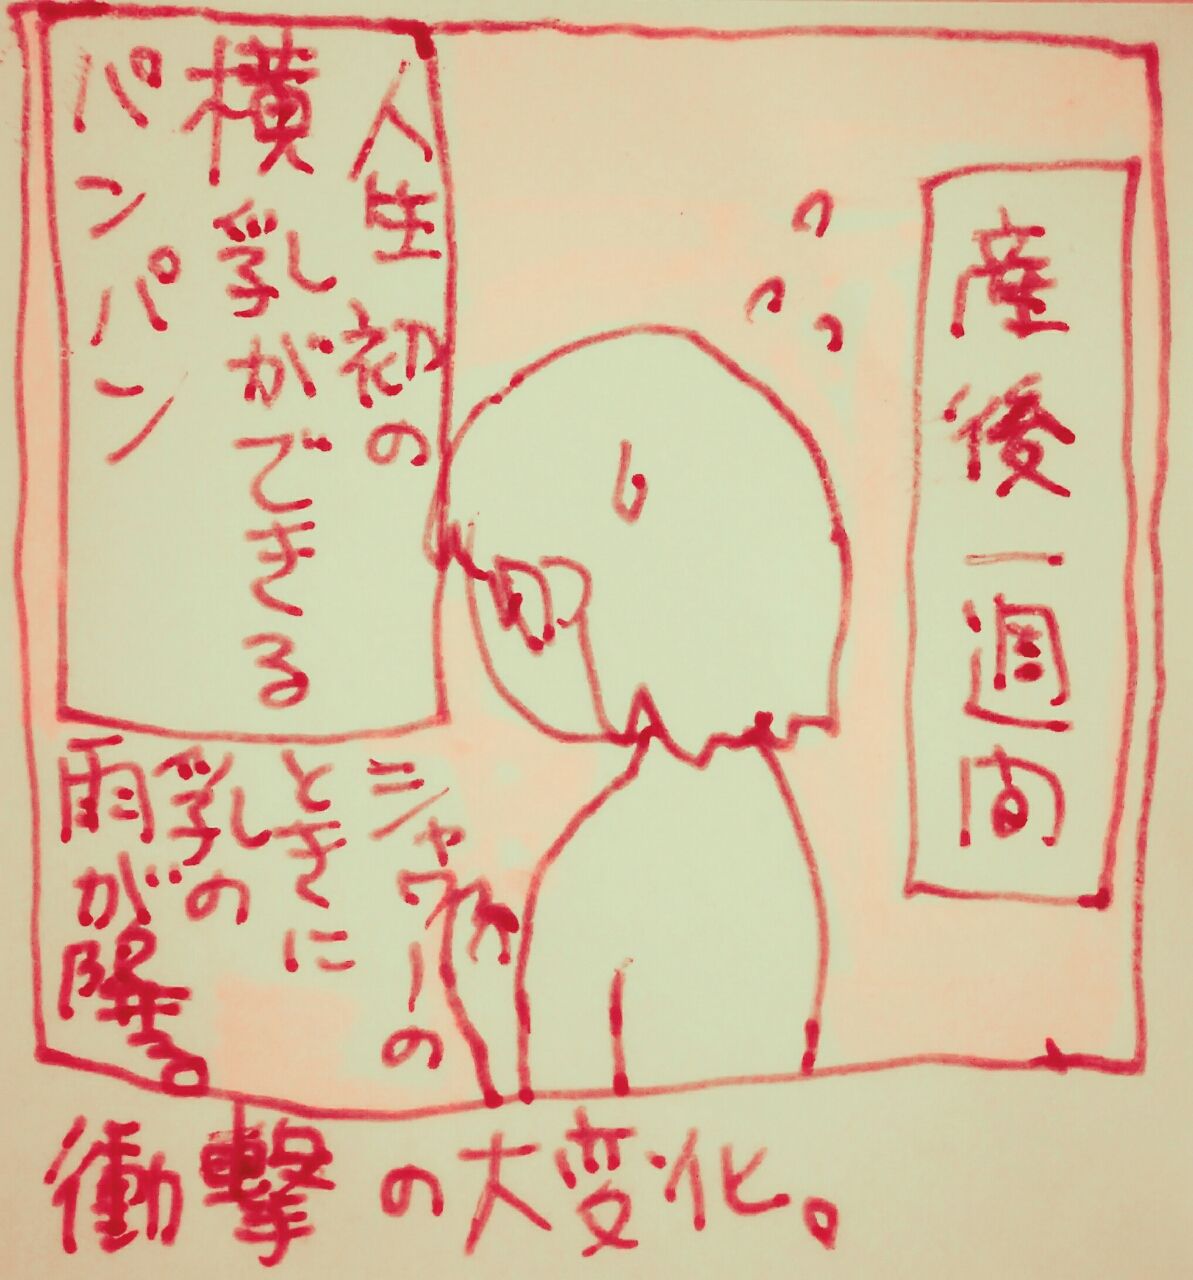 産後一週間
人生初の
横乳ができる
パンパン
シャワーの
ときに
乳の
雨が降る
衝撃の大変化。